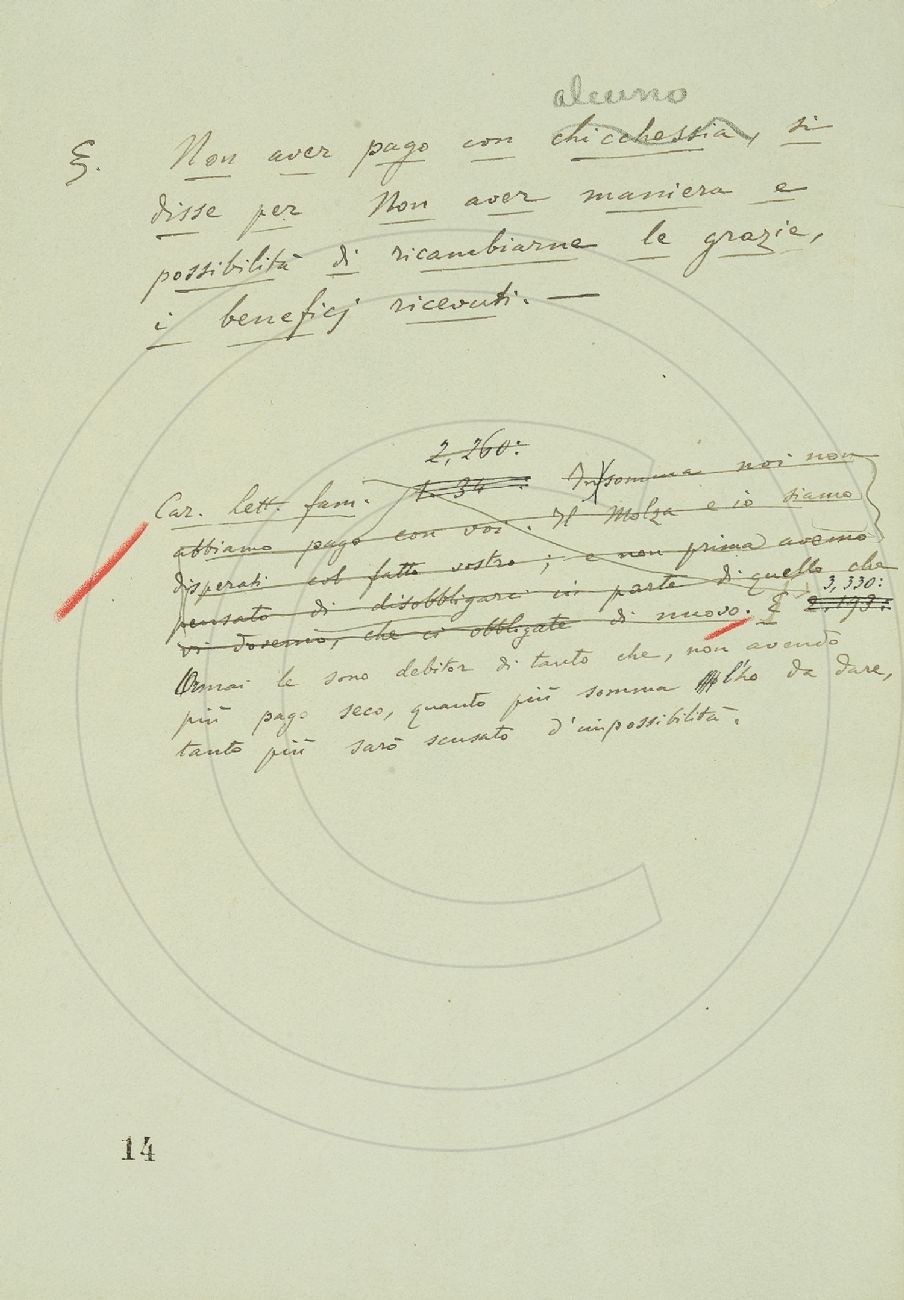 alcuno
§. Non aver pago con chicchessia, si
disse per Non aver maniera e
possibilità di ricambiarne le grazie,
i beneficj ricevuti. —
2, 260:
Car. Lett. fam. 1. 34 : Insomma noi non
abbiamo pago con voi. Il Molza e io siamo
disperati col fatto vostro; e non prima avemo
pensato di disobbligarci in parte di quello che
vi dovemo, che ci obbligate di nuovo. E 2, 193:
3, 330:
Ormai le sono debitor di tanto che, non avendo
più pago seco, quanto più somma l'ho da dare,
tanto più sarò scusato d'impossibilità.
14